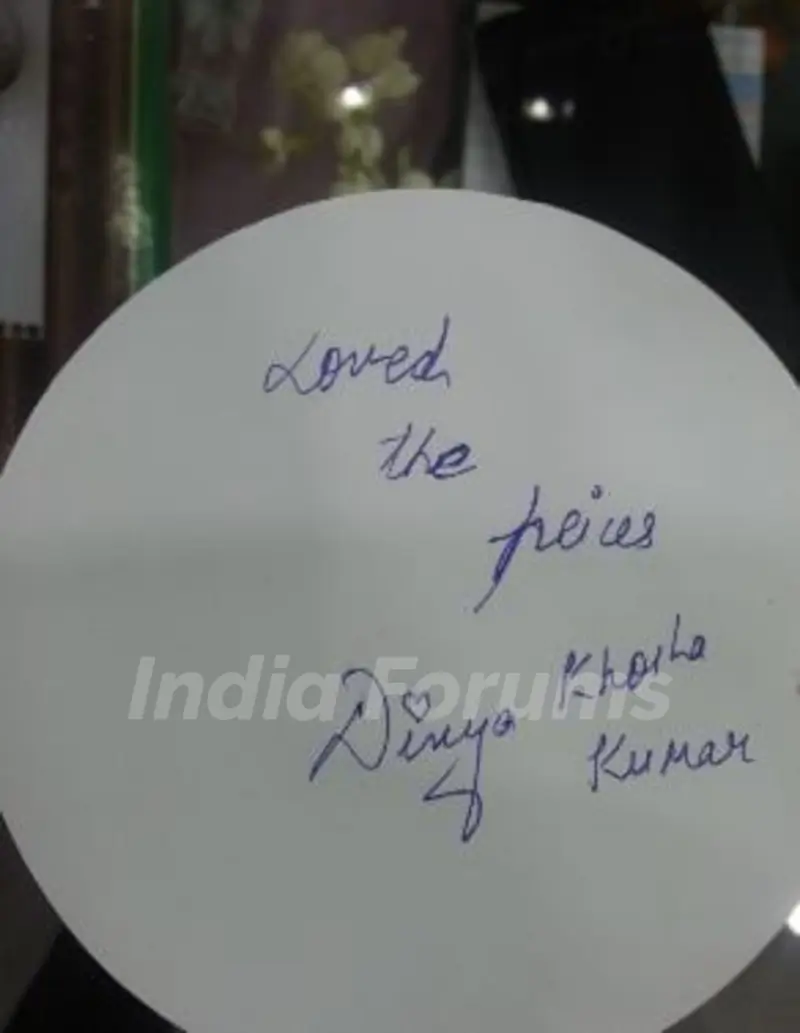 Loved
the
peices
Khosla
Divya
Kumar
India Forums